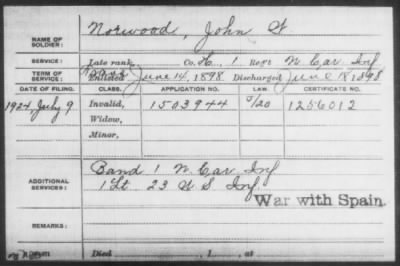 NAME OF SOLDIER: Norwood, John W
SERVICE: Late rank, Co. H, 1 Reg't N. Car Inf
TERM OF SERVICE: Enlisted June 14, 1898 Discharged June 18, 1898
DATE OF FILING. CLASS. APPLICATION NO. LAW. CERTIFICATE NO.
1924 July 9 Invalid, 1503944 1256012
Widow,
Minor,
ADDITIONAL SERVICES: Band 1 N. Car Inf
1 Lt. 23 U S Inf
War with Spain.
REMARKS:
Died , 1 , at